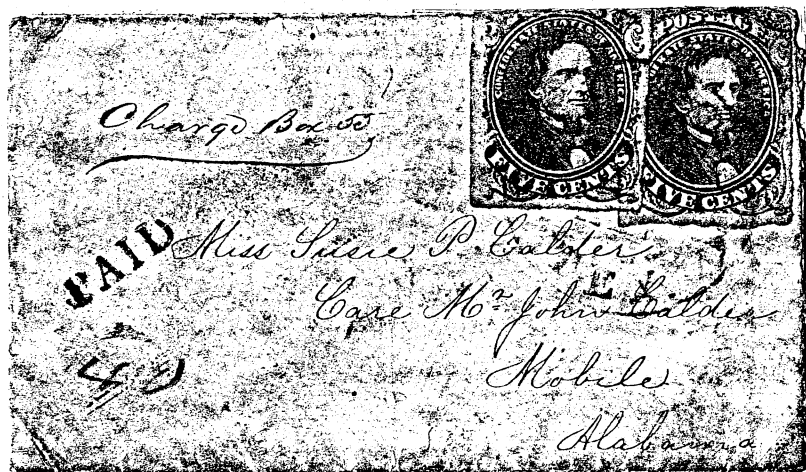 POSTAGE
CONFEDERATE STATES OF AMERICA
FIVE CENTS
FIVE CENTS
Charge Box 55
PAID
Miss Susie P. Calder
Care Mr John Calder
Mobile
Alabama